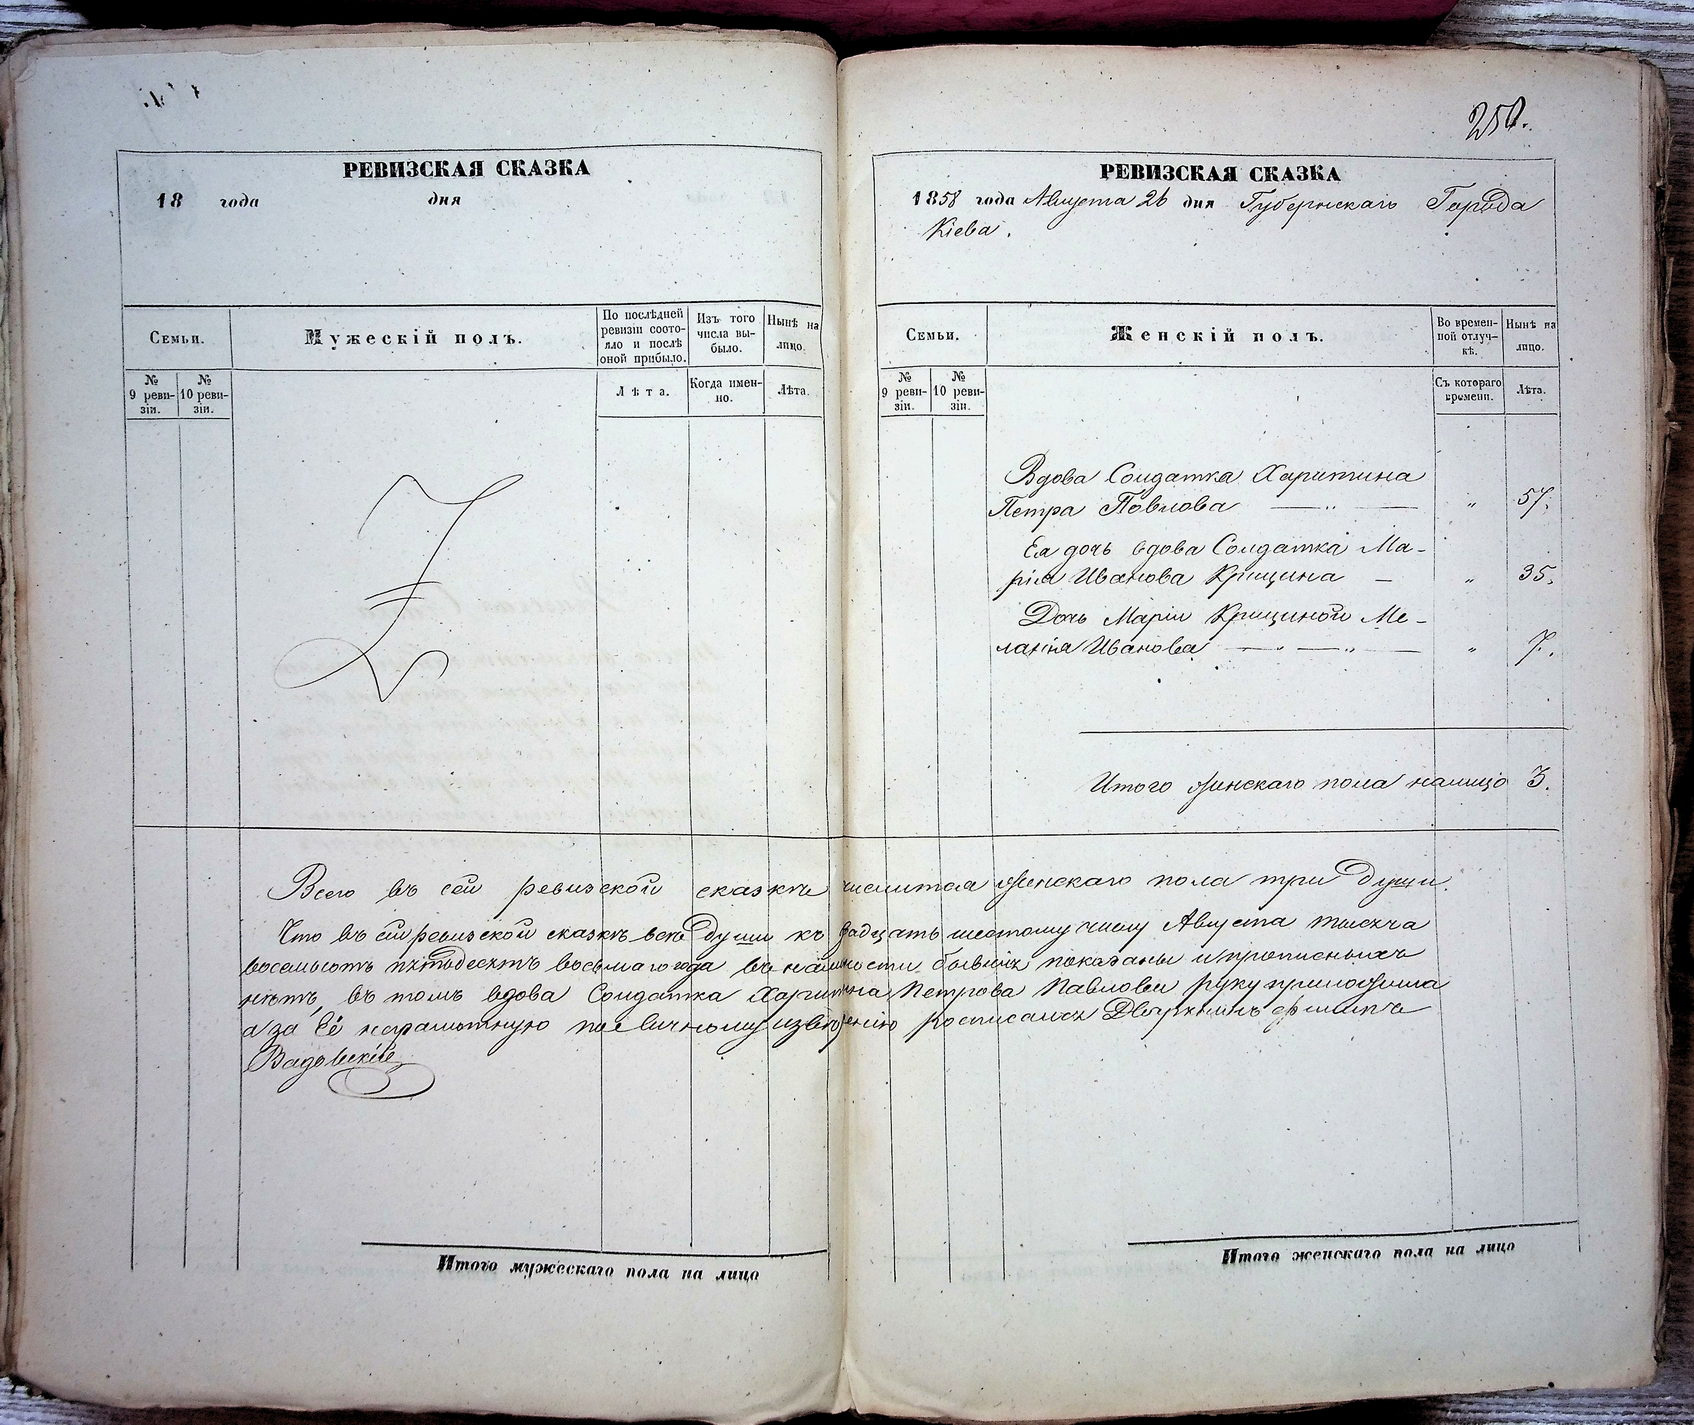 РЕВИЗСКАЯ СКАЗКА
18 года дня
Семьи.
Мужескій полъ.
По послѣдней ревизіи состояло и послѣ оной прибыло.
Изъ того числа выбыло.
Нынѣ на лицо.
№ 9 ревизіи.
№ 10 ревизіи.
Лѣта.
Когда именно.
Лѣта.
Итого мужескаго пола на лицо
250.
РЕВИЗСКАЯ СКАЗКА
1858 года Августа 26 дня Губернскаго Города
Кіева.
Семьи.
Женскій полъ.
Во временной отлучкѣ.
Нынѣ на лицо.
№ 9 ревизіи.
№ 10 ревизіи.
Съ котораго времени.
Лѣта.
Вдова Солдатка Харитина
Петра Повлова " 57.
Ея дочь вдова Солдатка Ма-
рія Иванова Крицина " 35.
Дочь Маріи Крициной Ме-
ланія Иванова " 7.
Итого женскаго пола налицо 3.
Всего въ сей ревизской сказкѣ числится женскаго пола три души.
Что въ сей ревизской сказкѣ всѣ души къ двадцать шестому числу Августа тысяча
восемьсотъ пятьдесятъ восьмаго года въ наличности бывшія показаны и прописныхъ
нѣтъ, въ томъ вдова Солдатка Харитина Петрова Павлова руку приложила
а за её неграмотную по личному росписался Дворянинъ
Итого женскаго пола на лицо